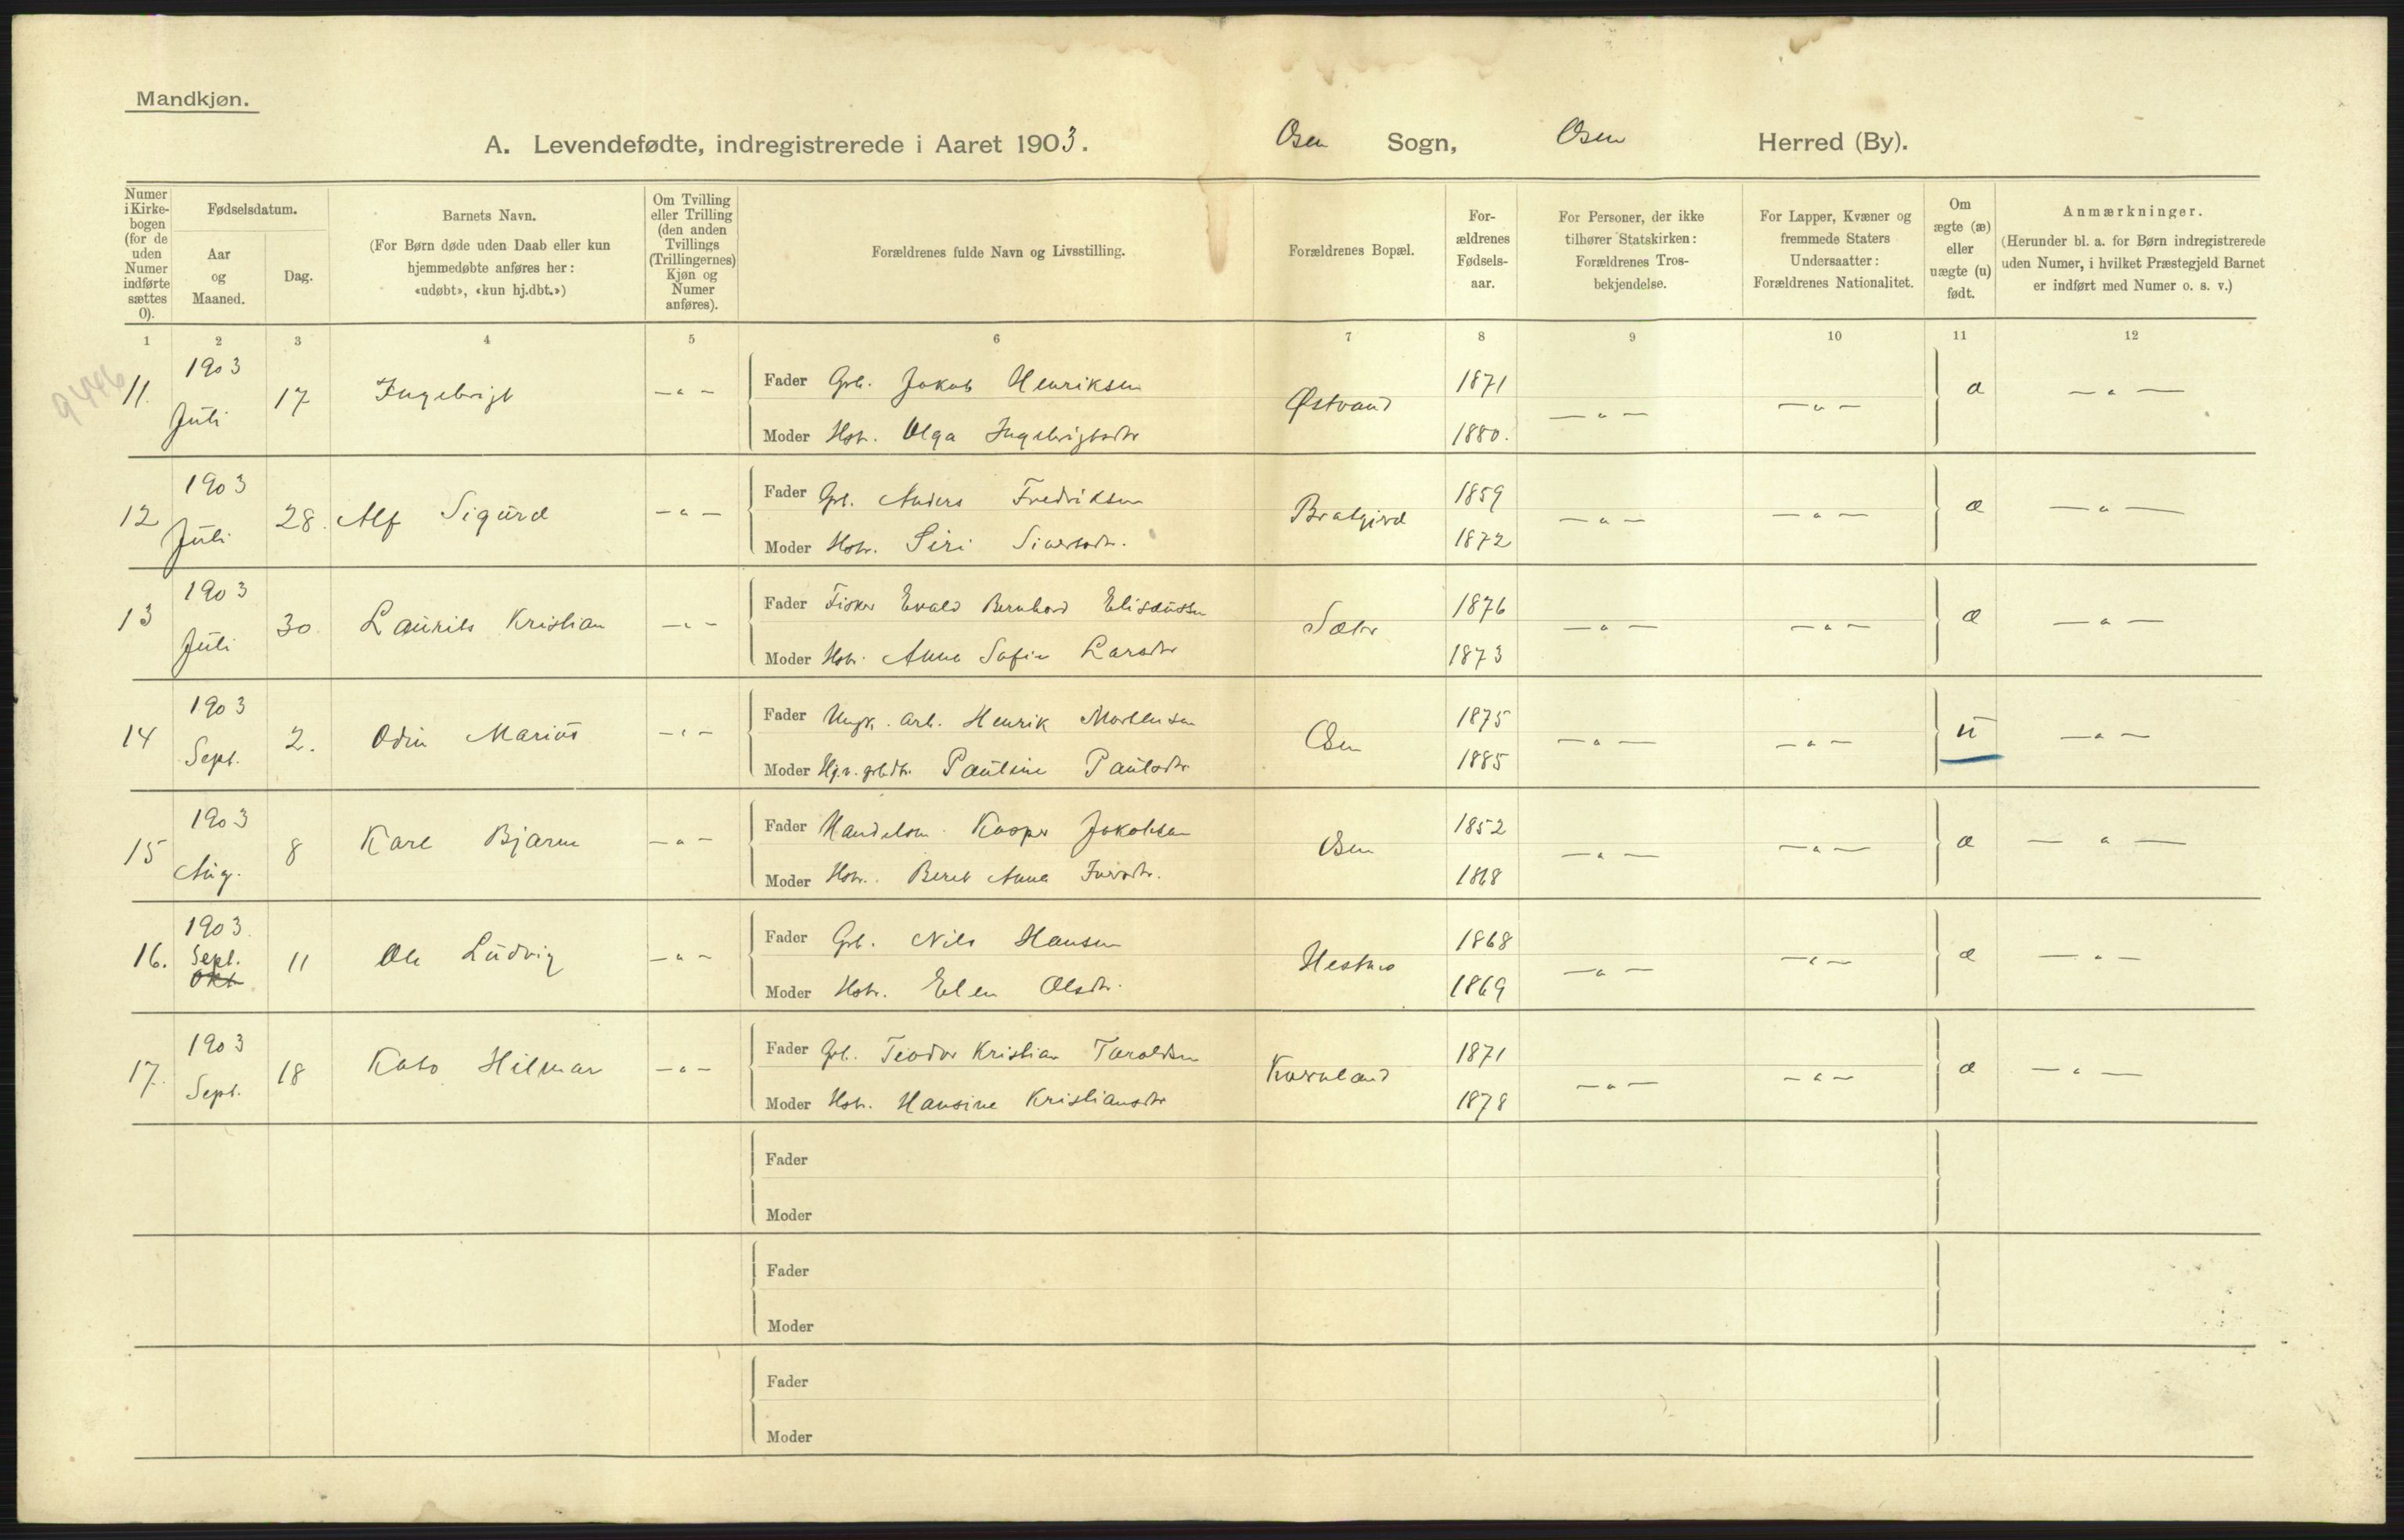 Mandkjøn.
A. Levendefødte, indregistrerede i Aaret 1903. Osen Sogn, Osen Herred (By).
Numer i Kirke-bogen (for de uden Numer indførte sættes 0).
Fødselsdatum.
Aar og Maaned.
Dag.
Barnets Navn.
(For Børn døde uden Daab eller kun hjemmedøbte anføres her: «udøbt», «kun hj.dbt.»)
Om Tvilling eller Trilling (den anden Tvillings (Trillingernes) Kjøn og Numer anføres).
Forældrenes fulde Navn og Livsstilling.
Forældrenes Bopæl.
For-ældrenes Fødsels-aar.
For Personer, der ikke tilhører Statskirken: Forældrenes Tros-bekjendelse.
For Lapper, Kvæner og fremmede Staters Undersaatter: Forældrenes Nationalitet.
Om ægte (æ) eller uægte (u) født.
Anmærkninger.
(Herunder bl. a. for Børn indregistrerede uden Numer, i hvilket Præstegjeld Barnet er indført med Numer o. s. v.)
1 2 3 4 5 6 7 8 9 10 11 12
9446
11. 1903 Juli 17 Ingebrigt — " — Fader Grb. Jakob Henriksen Østvand 1871 — " — — " — æ — " —
Moder Hstr. Olga Ingebrigtsdtr 1880.
12 1903 Juli 28. Alf Sigurd — " — Fader Grb. Anders Fredriksen 1859 — " — — " — æ — " —
Moder Hstr. Siri Sivertsdtr. 1872
13 1903 Juli 30 Laurits Kristian — " — Fader Fisker Evald Bernhard Eliseussen Sæter 1876 — " — — " — æ — " —
Moder Hstr. Anna Sofie Larsdtr 1873
14 1903 Sept. 2. Odin Marius — " — Fader Ungk. arb. Henrik Mortensen Osen 1875 — " — — " — u — " —
Moder Pauline Paulsdtr 1885
15 1903 Aug. 8 Karl Bjarne — " — Fader Handelsm. Kasper Jakobsen Osen 1852 — " — — " — æ — " —
Moder Hstr. Beret Anna 1868
16. 1903 Sept. Okt 11 Ole Ludvig — " — Fader Grb. Nils Hansen 1868 — " — — " — æ — " —
Moder Hstr. Elen Olsdtr. 1869
17. 1903 Sept. 18 Kato Hilmar — " — Fader Grb. Teodor Kristian Taraldsen 1871 — " — — " — æ — " —
Moder Hstr. Hansine Kristiansdtr 1878
Fader
Moder
Fader
Moder
Fader
Moder